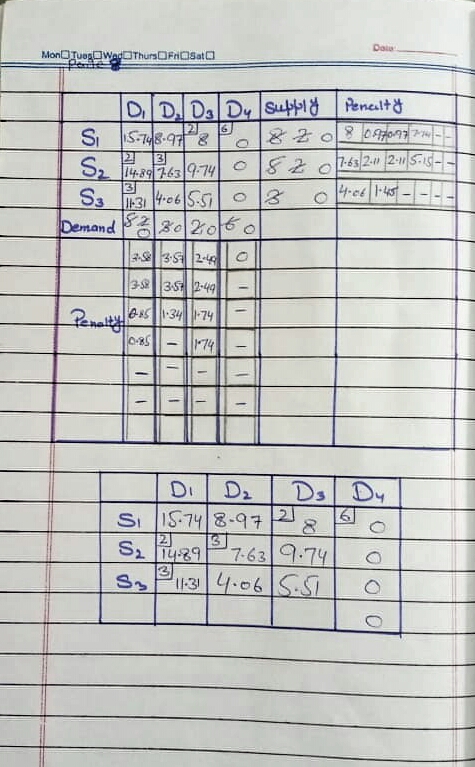 Date:
Mon Tues Wed Thurs Fri Sat
D1 D2 D3 D4 Supply Penalty
S1 15.74 8.97 2 8 6 0 8 2 0 8 0.97 0.97 7.74 - -
S2 2 14.89 3 7.63 9.74 0 8 2 0 7.63 2.11 2.11 5.15 - -
S3 3 11.31 4.06 5.51 0 3 0 4.06 1.45 - - - -
Demand 5 2 0 3 0 2 0 6 0
3.58 3.57 2.49 0
3.58 3.57 2.49 -
Penalty 0.85 1.34 1.74 -
0.85 - 1.74 -
- - - -
- - - -
D1 D2 D3 D4
S1 15.74 8.97 2 8 6 0
S2 2 14.89 3 7.63 9.74 0
S3 3 11.31 4.06 5.51 0
0